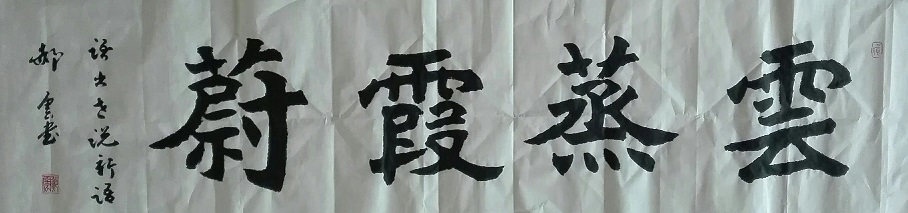 雲蒸霞蔚
語出世说新語
郝雲书